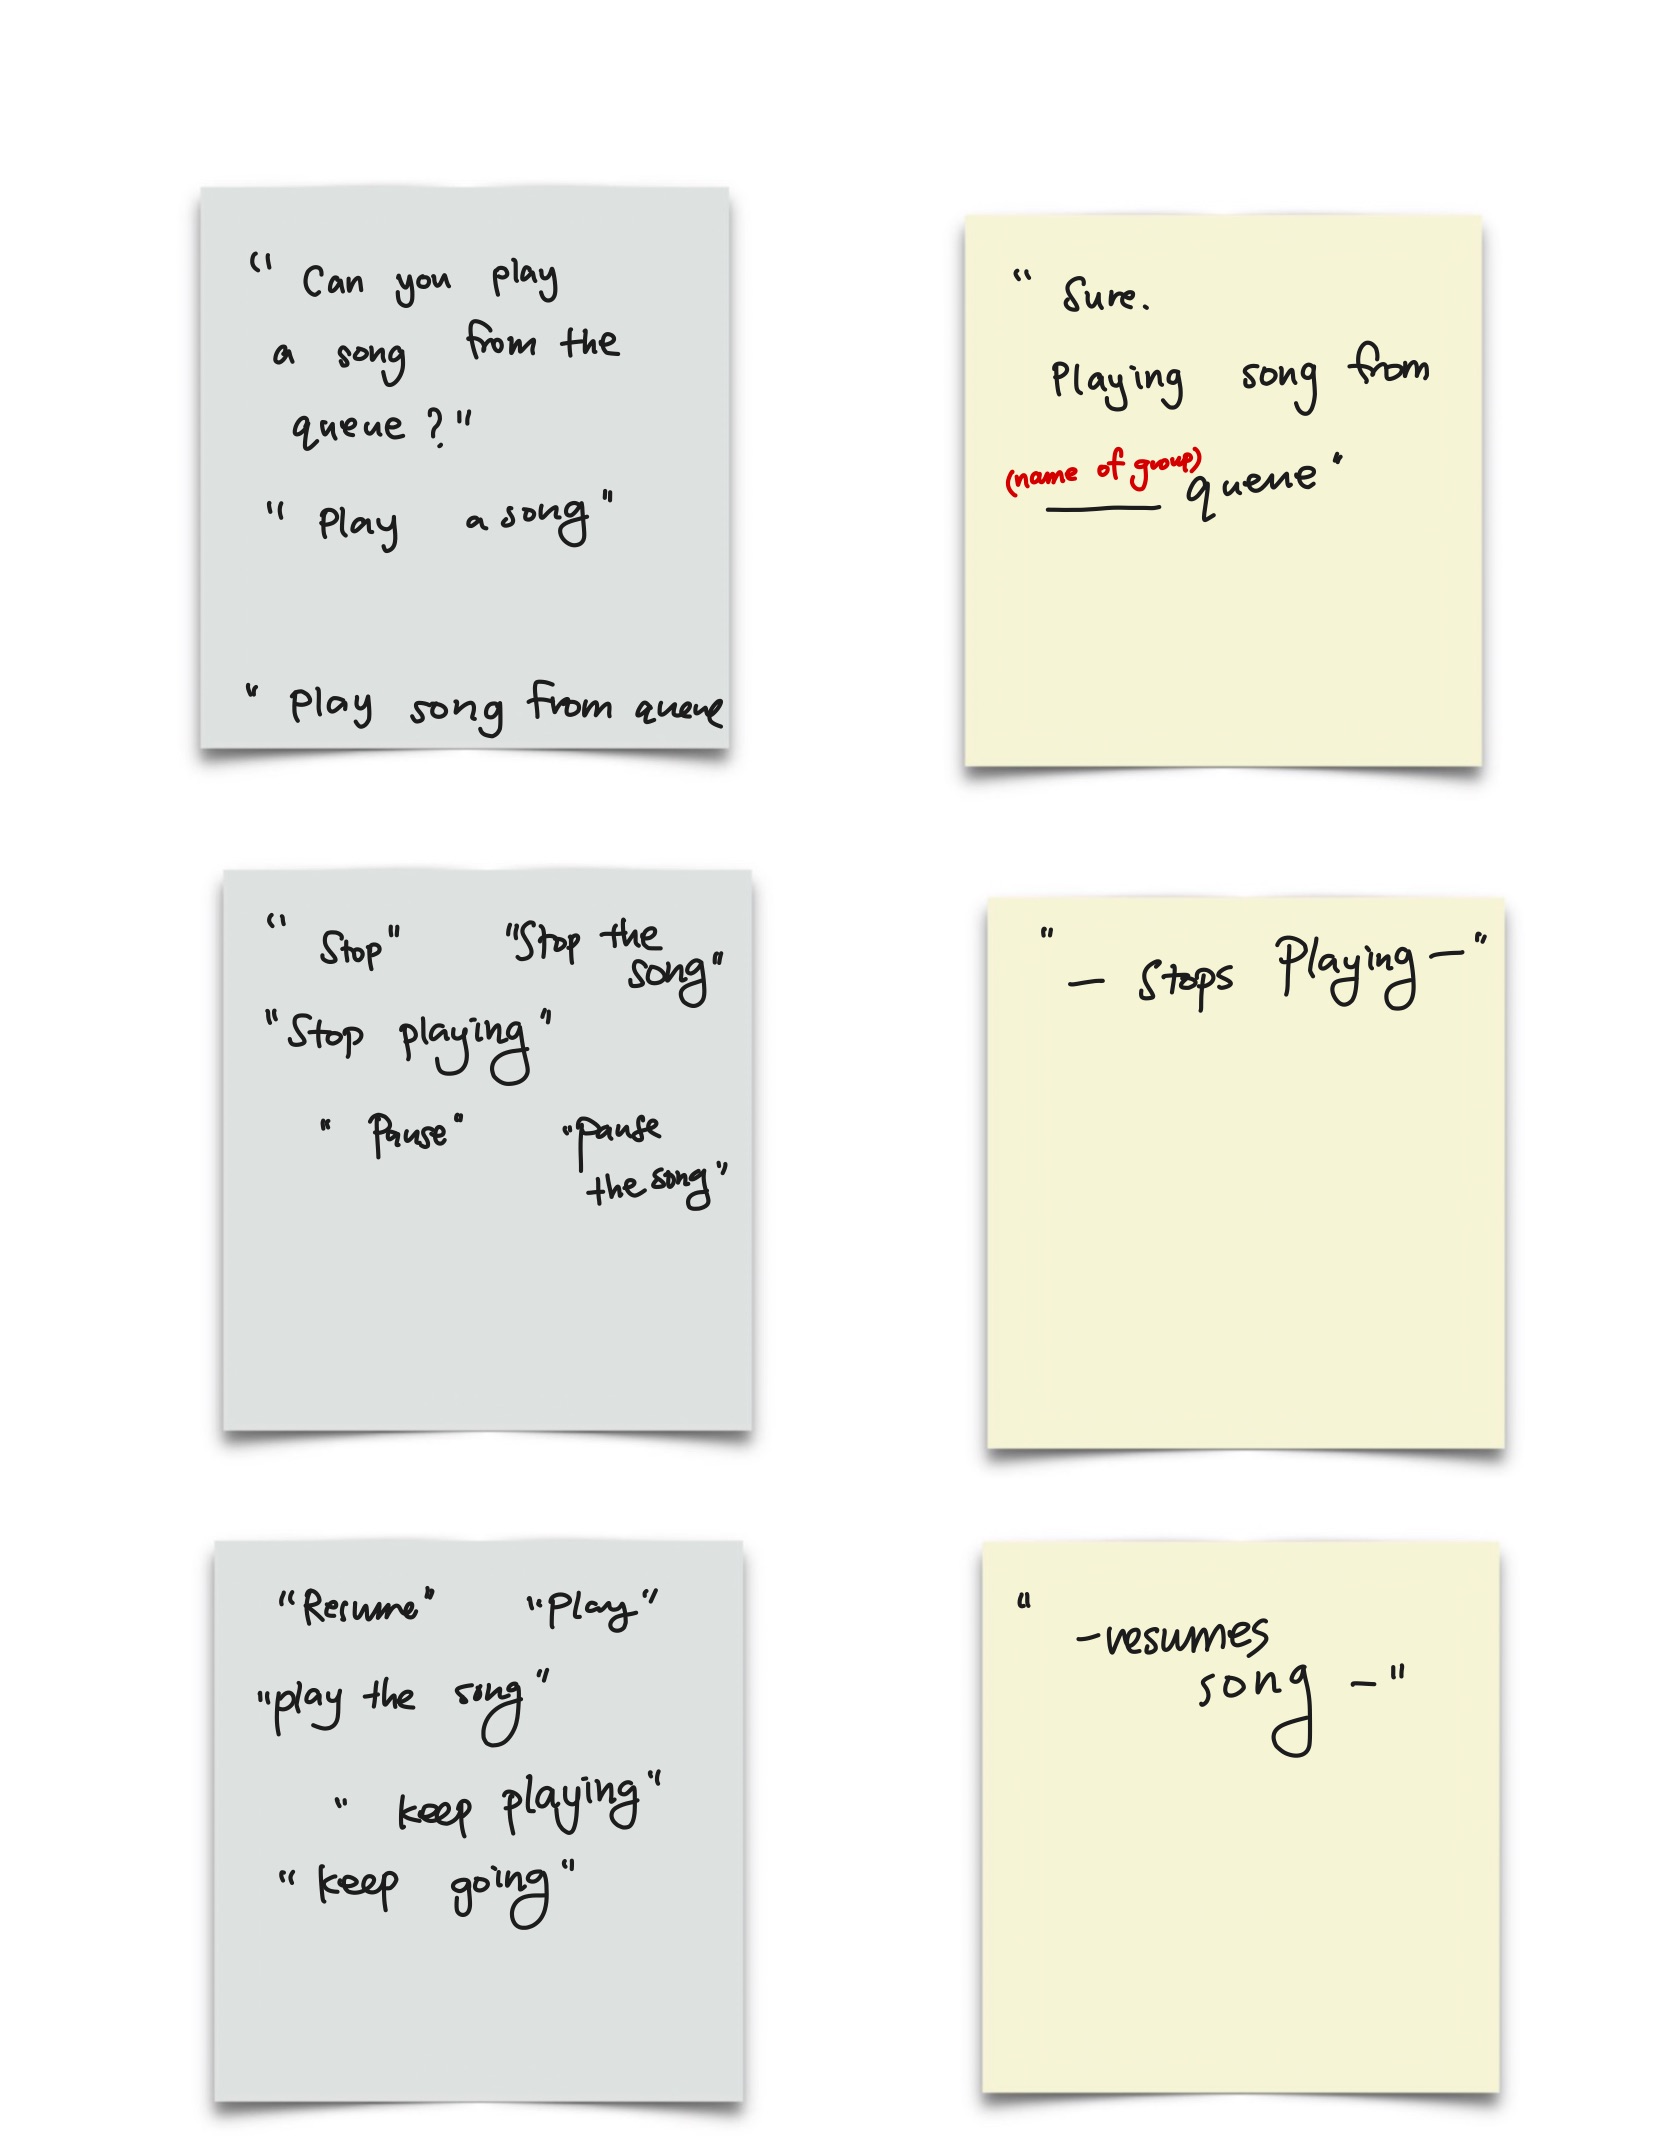 "Can you play
a song from the
queue?"
"Play a song"
"Play song from queue
"Sure.
Playing song from
(name of group)
____ queue"
"Stop" "Stop the
song"
"Stop playing"
"Pause" "pause
the song"
"
— Stops Playing —"
"Resume" "Play"
"play the song"
"keep playing"
"keep going"
"
- resumes
song -"